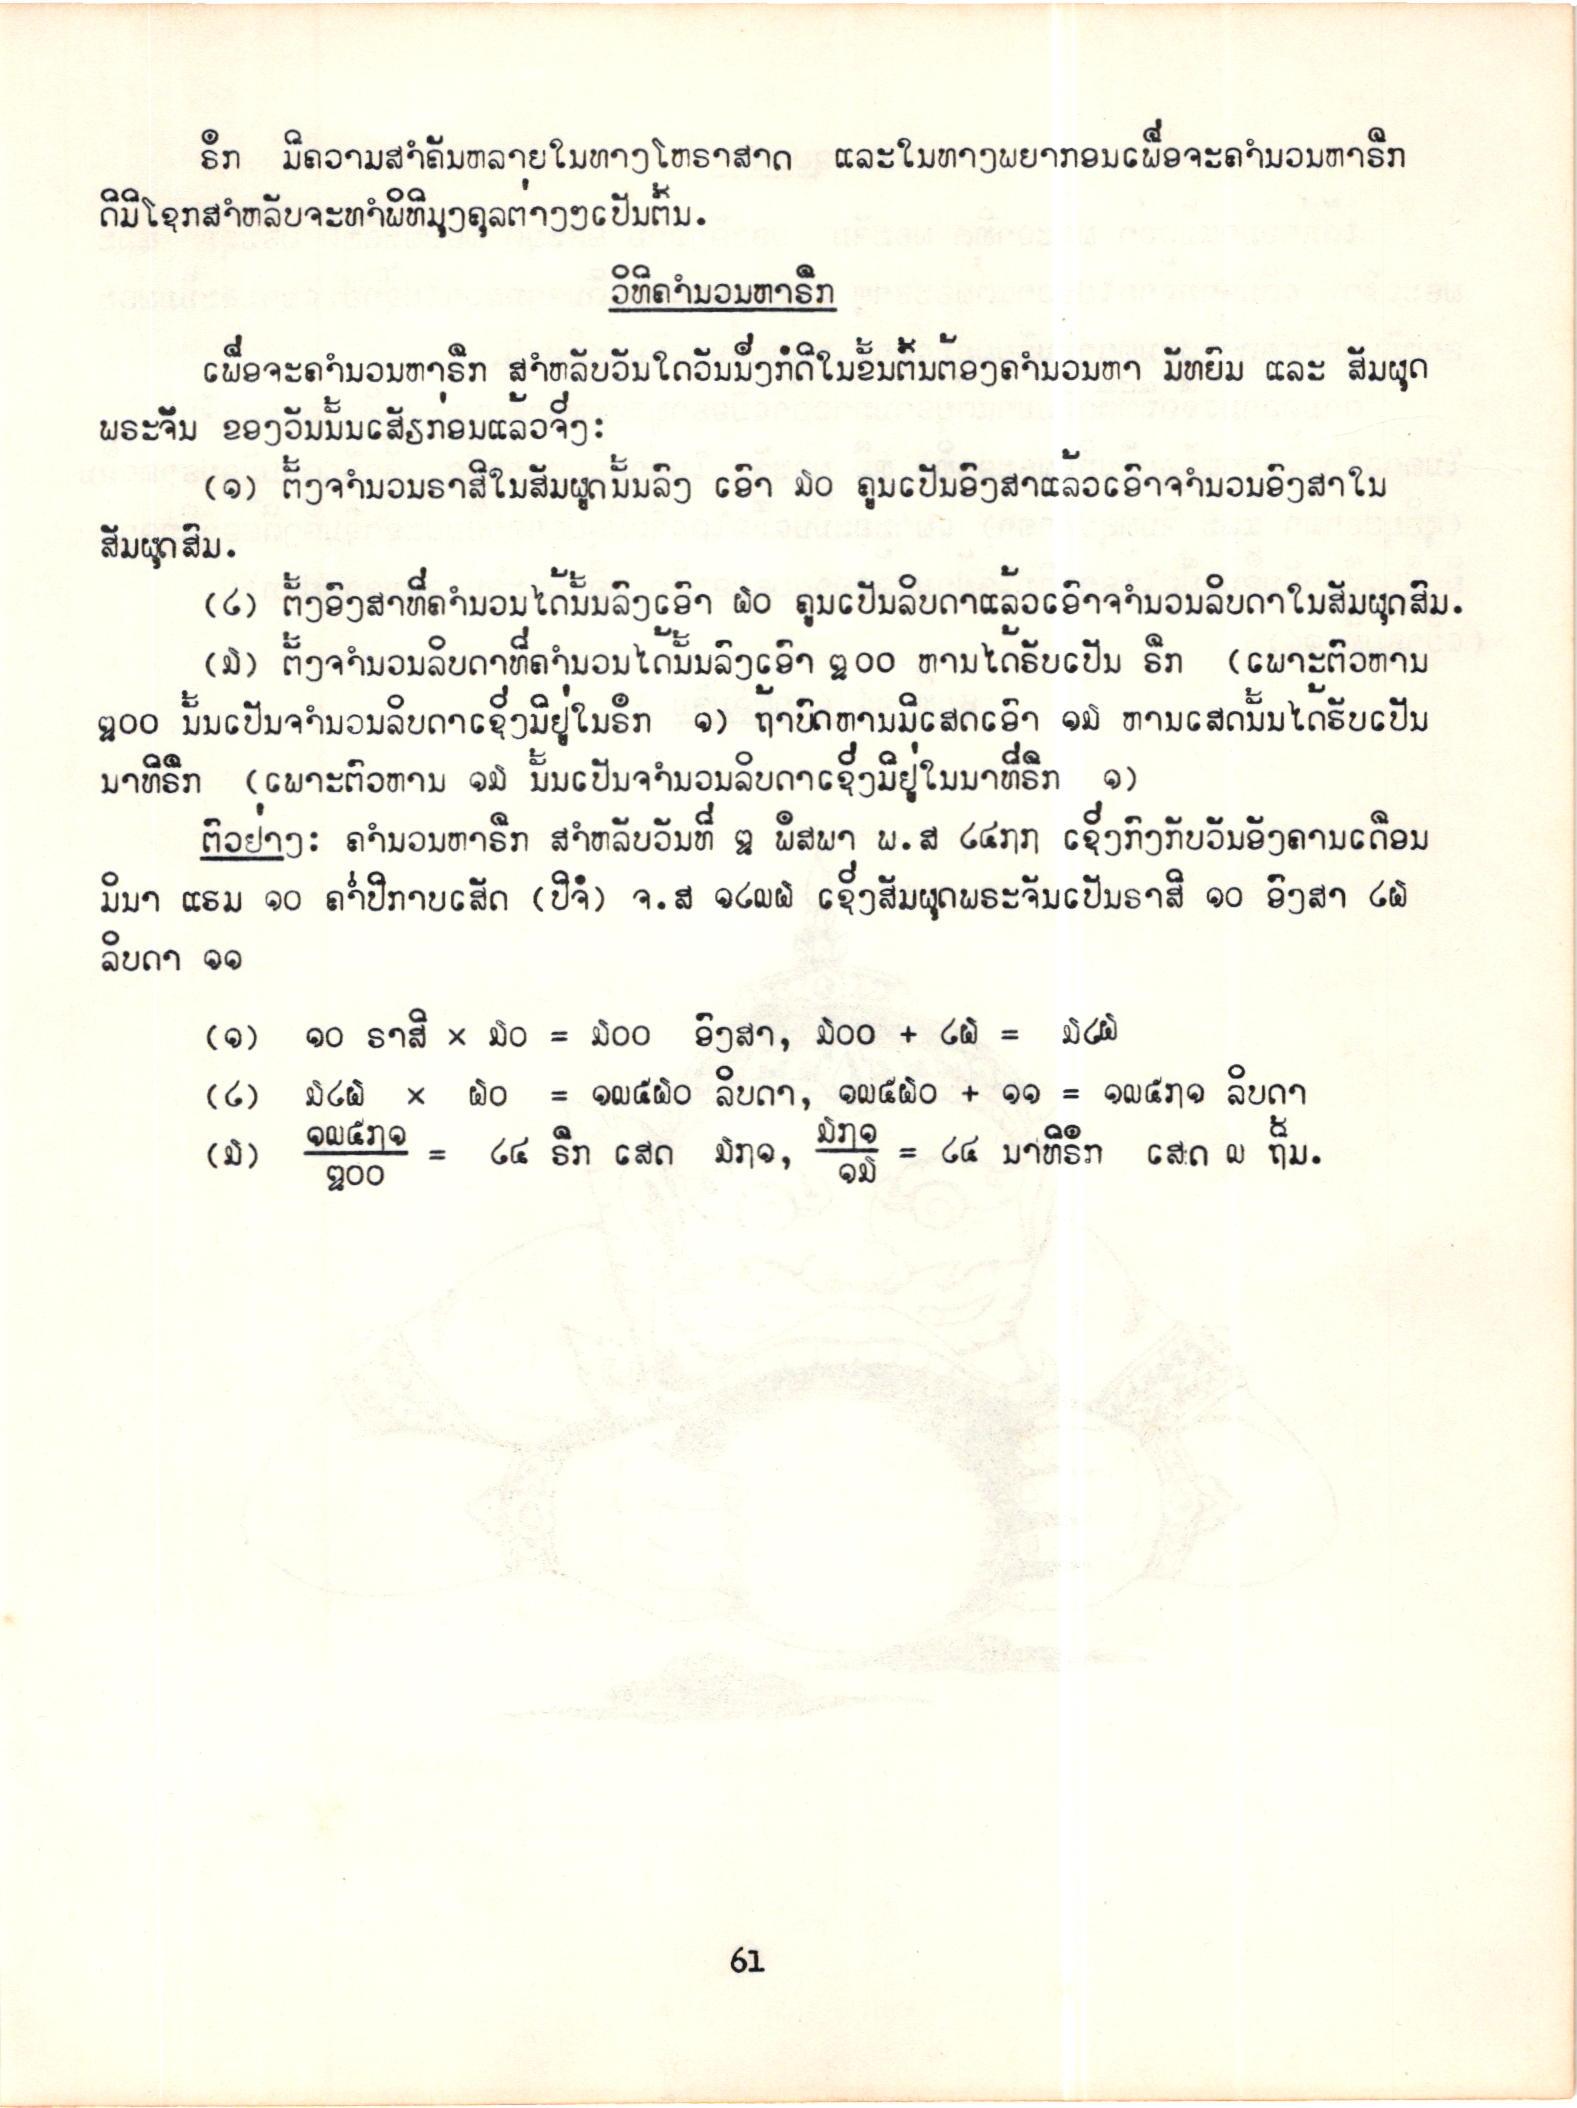 ຣິກ ມີຄວາມສຳຄັນຫລາຍໃນທາງໂຫຣາສາດ ແລະໃນທາງພຍາກອນເພື່ອຈະຄຳນວນຫາຣືກ
ດີມີໂຊກສຳຫລັບຈະທຳພິທີມຸງຄຸລຕ່າງໆເປັນຕົ້ນ.
ວິທີຄຳນວນຫາຣືກ
ເພື່ອຈະຄຳນວນຫາຣືກ ສຳຫລັບວັນໃດວັນນຶ່ງກໍດີໃນຂັ້ນຕົ້ນຕ້ອງຄຳນວນຫາ ມັທຍົມ ແລະ ສັມຜຸດ
ພຣະຈັນ ຂອງວັນນັ້ນເສັຽກ່ອນແລ້ວຈຶ່ງ:
(໑) ຕັ້ງຈຳນວນຣາສີໃນສັມຜຸດນັ້ນລົງ ເອົາ ໓໐ ຄູນເປັນອົງສາແລ້ວເອົາຈຳນວນອົງສາໃນ
ສັມຜຸດສົມ.
(໒) ຕັ້ງອົງສາທີ່ຄຳນວນໄດ້ນັ້ນລົງເອົາ ໖໐ ຄູນເປັນລິບດາແລ້ວເອົາຈຳນວນລິບດາໃນສັມຜຸດສົມ.
(໓) ຕັ້ງຈຳນວນລິບດາທີ່ຄຳນວນໄດ້ນັ້ນລົງເອົາ ໘໐໐ ຫານໄດ້ຮັບເປັນ ຣືກ (ເພາະຕົວຫານ
໘໐໐ ນັ້ນເປັນຈຳນວນລິບດາເຊິ່ງມີຢູ່ໃນຣິກ ໑) ຖ້າບົດຫານມີເສດເອົາ ໑໓ ຫານເສດນັ້ນໄດ້ຮັບເປັນ
ນາທີຣືກ (ເພາະຕົວຫານ ໑໓ ນັ້ນເປັນຈຳນວນລິບດາເຊິ່ງມີຢູ່ໃນນາທີ່ຣືກ ໑)
ຕົວຢ່າງ: ຄຳນວນຫາຣືກ ສຳຫລັບວັນທີ່ ໘ ພຶສພາ ພ.ສ ໒໔໗໗ ເຊິ່ງກົງກັບວັນອັງຄານເດືອນ
ມິນາ ແຮມ ໑໐ ຄ່ຳປີກາບເສັດ (ປີຈໍ) ຈ.ສ ໑໒໙໖ ເຊິ່ງສັມຜຸດພຣະຈັນເປັນຣາສີ ໑໐ ອົງສາ ໒໖
ລິບດາ ໑໑
(໑) ໑໐ ຣາສີ × ໓໐ = ໓໐໐ ອົງສາ, ໓໐໐ + ໒໖ = ໓໒໖
(໒) ໓໒໖ × ໖໐ = ໑໙໕໖໐ ລິບດາ, ໑໙໕໖໐ + ໑໑ = ໑໙໕໗໑ ລິບດາ
(໓) ໑໙໕໗໑/໘໐໐ = ໒໔ ຣືກ ເສດ ໓໗໑, ໓໗໑/໑໓ = ໒໔ ນາທີຣິກ ເສດ ໙ ຖິ້ມ.
61